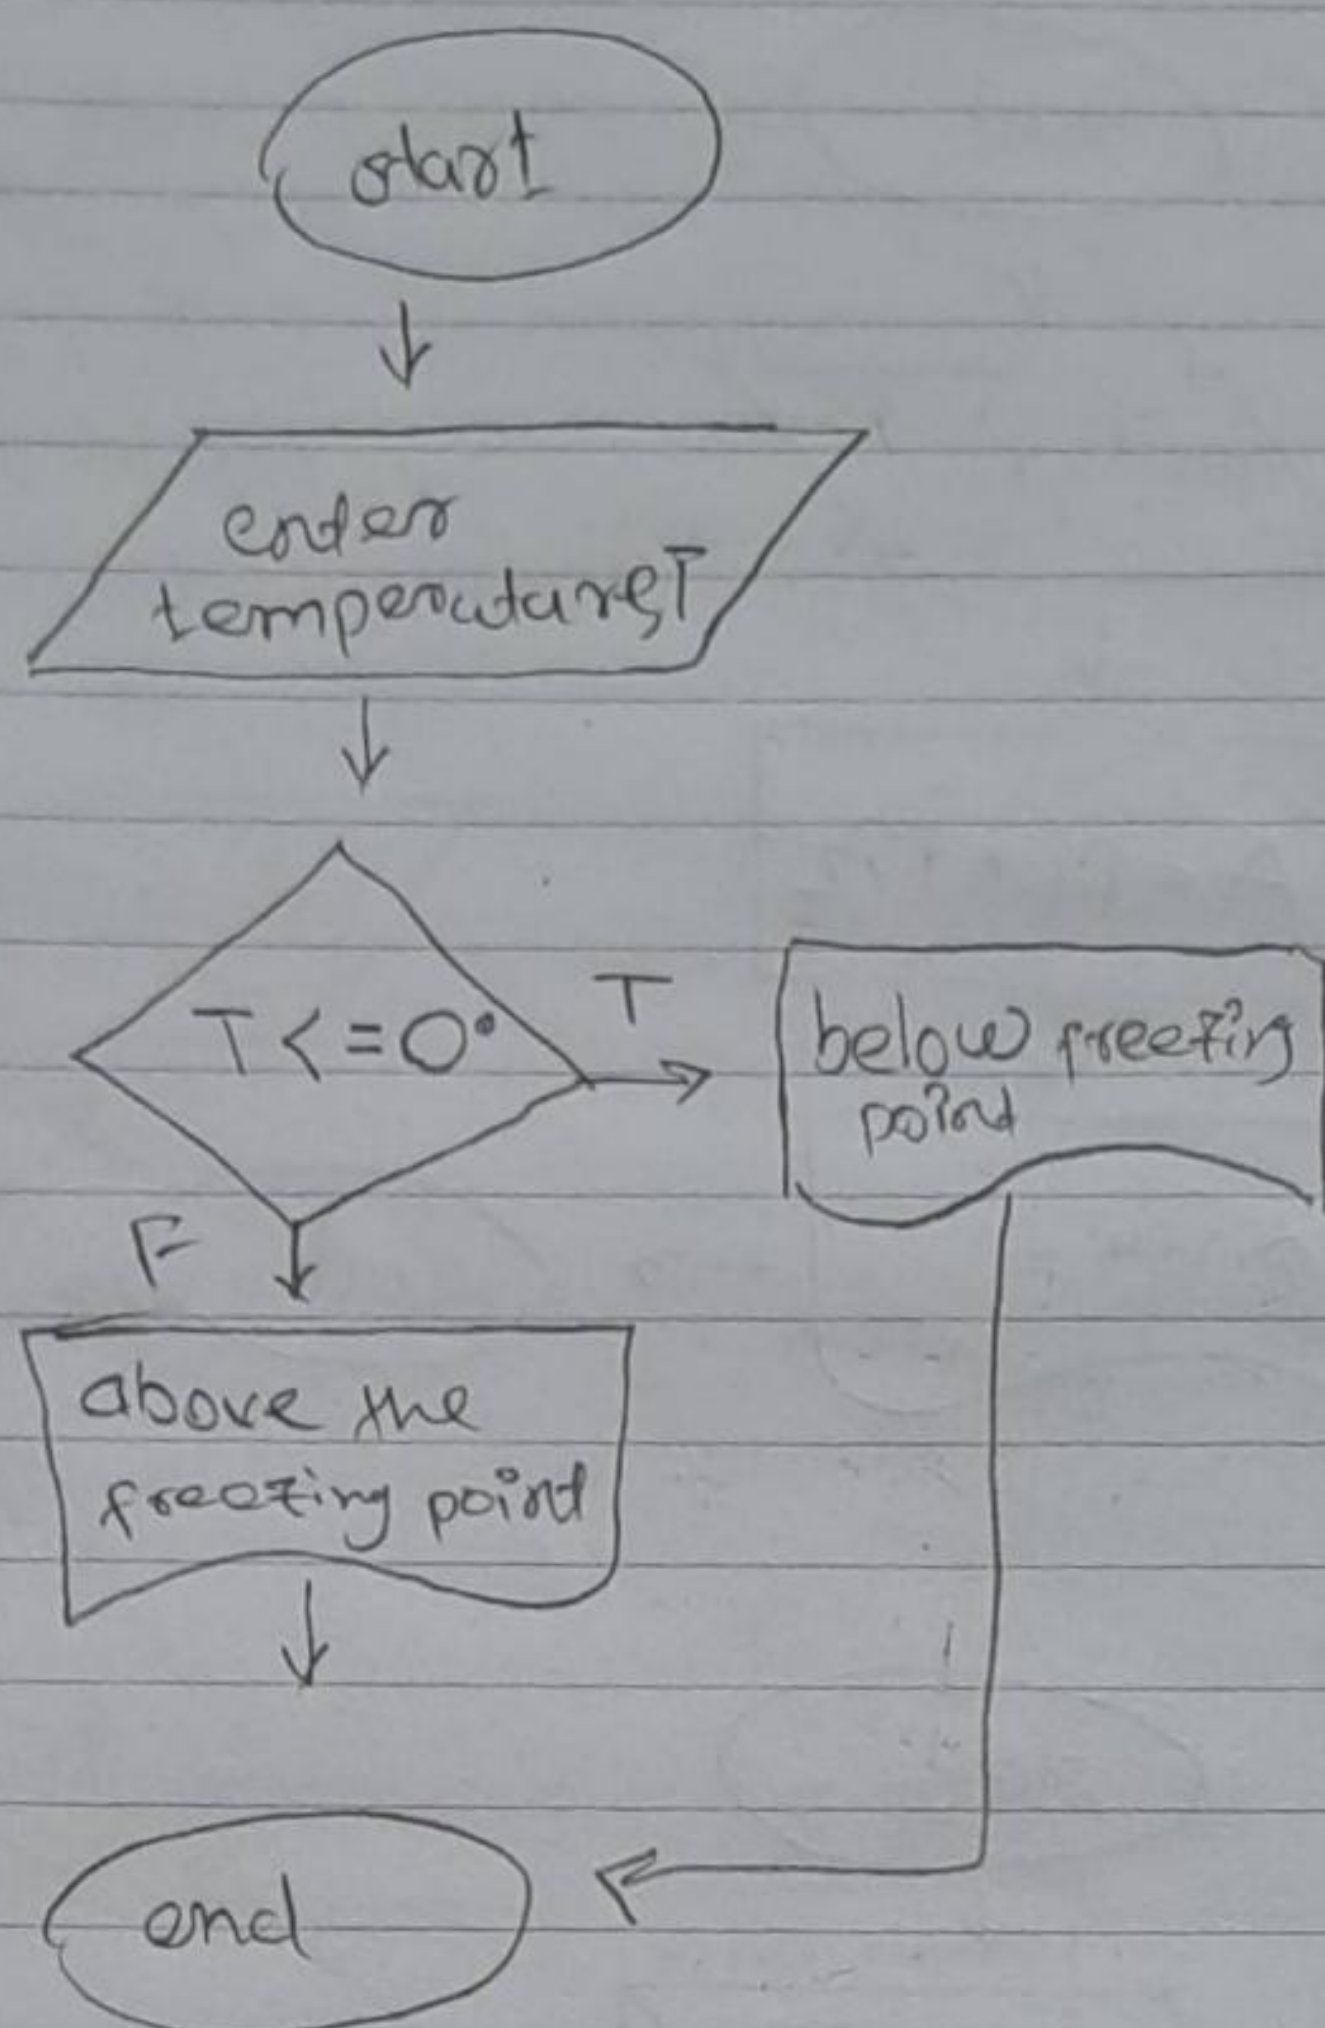 start
enter
temperature, T
T <= 0°
T
below freezing
point
F
above the
freezing point
end